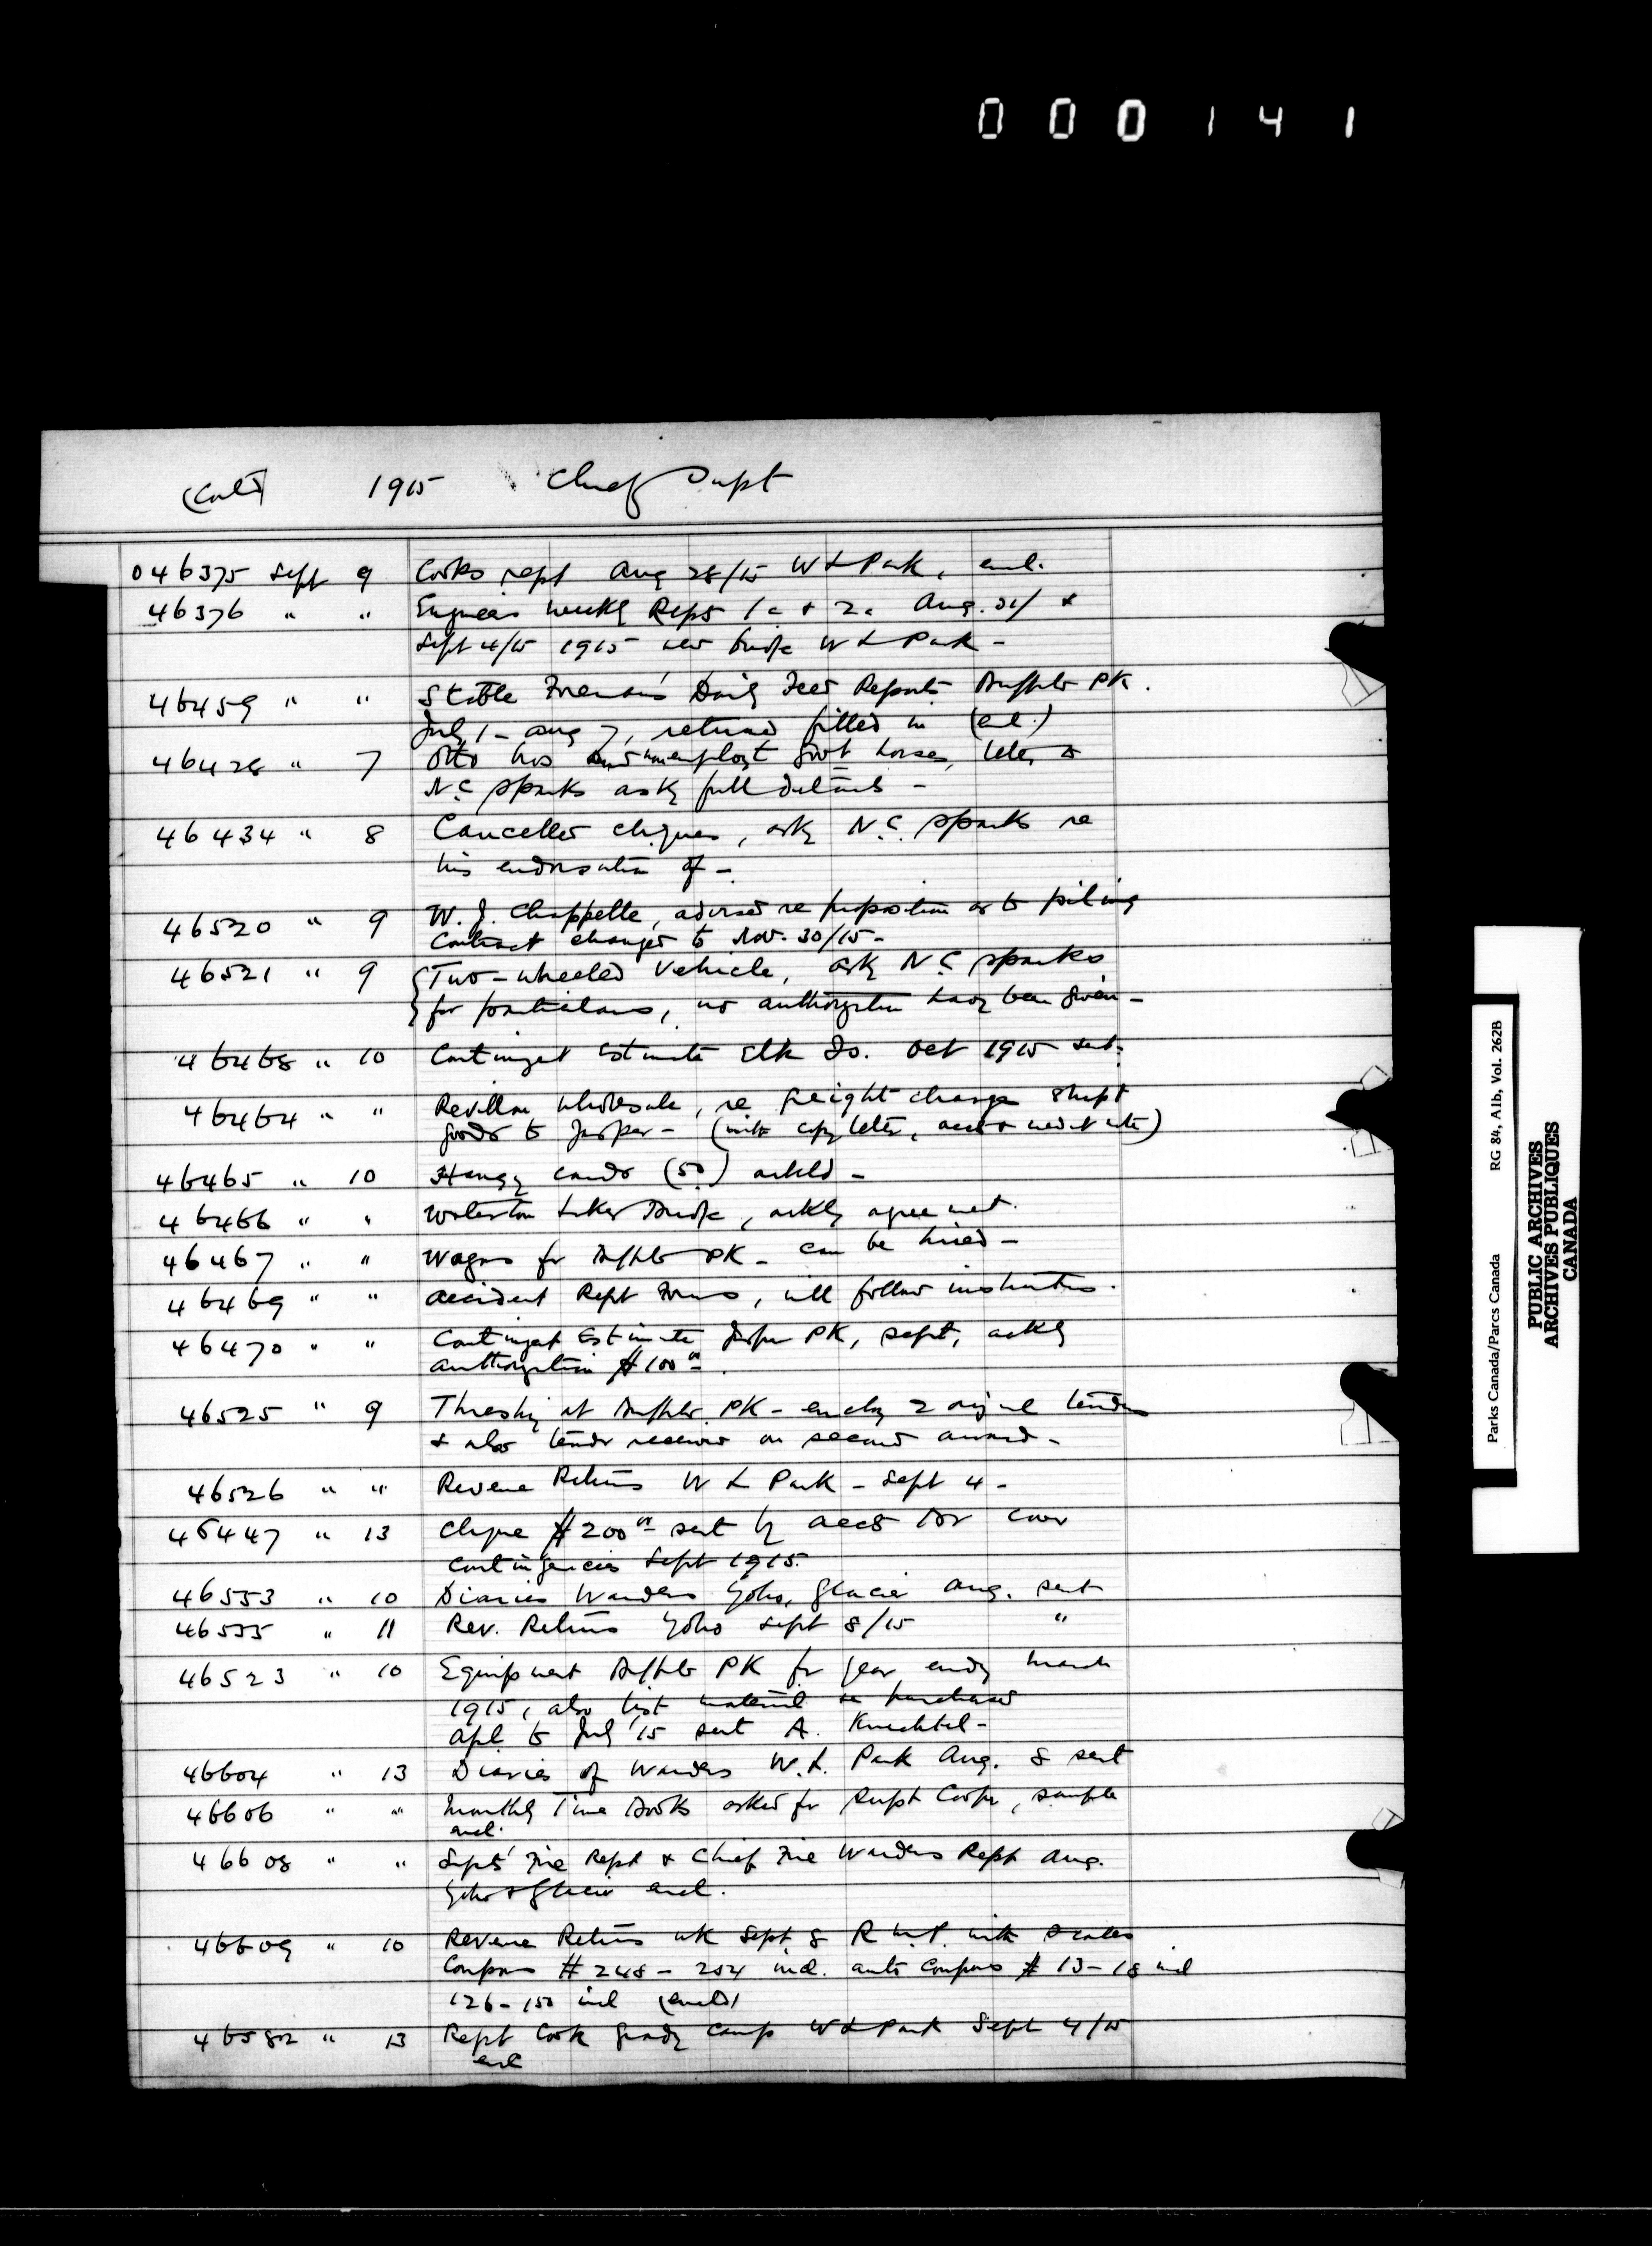 000141
(Cont) 1915 Chief Supt
046375 Sept 9 Cooks rept Aug 28/15 W L Park, encl.
46376 " " Engineers weekly Reps 1 & 2 Aug. 31/ &
Sept 4/15 1915 new bridge W L Park -
46459 " " Stable Foreman's Daily Feed Reports Buffalo PK.
July 1 - Aug 7, returned filled in (encl.)
46428 " 7 Otto has Govt horses, letter to
N.C. Sparks askg full details -
46434 " 8 Cancelled cheques, askg N.C. Sparks re
his endorsation of -
46520 " 9 W. J. Chappelle, advised re proposition as to piling
Contract changed to Nov. 30/15 -
46521 " 9 Two-wheeled Vehicle, askg N.C. Sparks
for particulars, no authorization havg been given -
46468 " 10 Contingent Estimate Elk Is. Oct 1915 sent.
46464 " " Revillon Wholesale, re freight charge shipt
goods to Jasper - (with copy letter, acct & credit note)
46465 " 10 cards (50) ackld -
46466 " " Waterton Lakes Bridge, acklg agreement.
46467 " " Wagons for Buffalo PK - can be hired -
46469 " " Accident Rept Forms, will follow instructions.
46470 " " Contingent Estimate Jasper PK, Sept, acklg
authorization $100 00.
46525 " 9 Threshg at Buffalo PK - enclg 2 original tenders
& also tender received on second award -
46526 " " Revenue Returns W L Park - Sept 4 -
46447 " 13 Cheque $200 00 sent by acct to cover
Contingencies Sept 1915.
46553 " 10 Diaries Wardens Yoho, Glacier Aug. sent
46555 " 11 Rev. Returns Yoho Sept 8/15 "
46523 " 10 Equipment Buffalo PK for year endg March
1915, also list material purchased
Apl. to July '15 sent A. Knechtel -
46604 " 13 Diaries of Wardens W. L. Park Aug. 8 sent
46606 " " Monthly Time Books asked for Supt Cooper, sample
encl.
46608 " " Supts' Fire Rept & Chief Fire Wardens Rept Aug.
Yoho & Glacier encl.
46609 " 10 Revenue Returns wk Sept 8 R.M.P. with
Coupons # 248 - 254 incl. auto Coupons # 13-18 incl
126-150 incl (encld)
46582 " 13 Rept Cook Gradg Camp W L Park Sept 4/15
encl
Parks Canada/Parcs Canada RG 84, A1b, Vol. 262B
PUBLIC ARCHIVES
ARCHIVES PUBLIQUES
CANADA